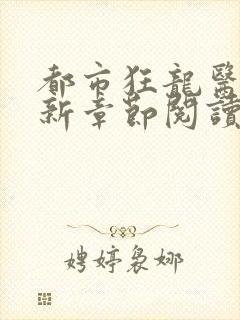 都市狂龍醫
新章節閱讀
娉婷裊娜